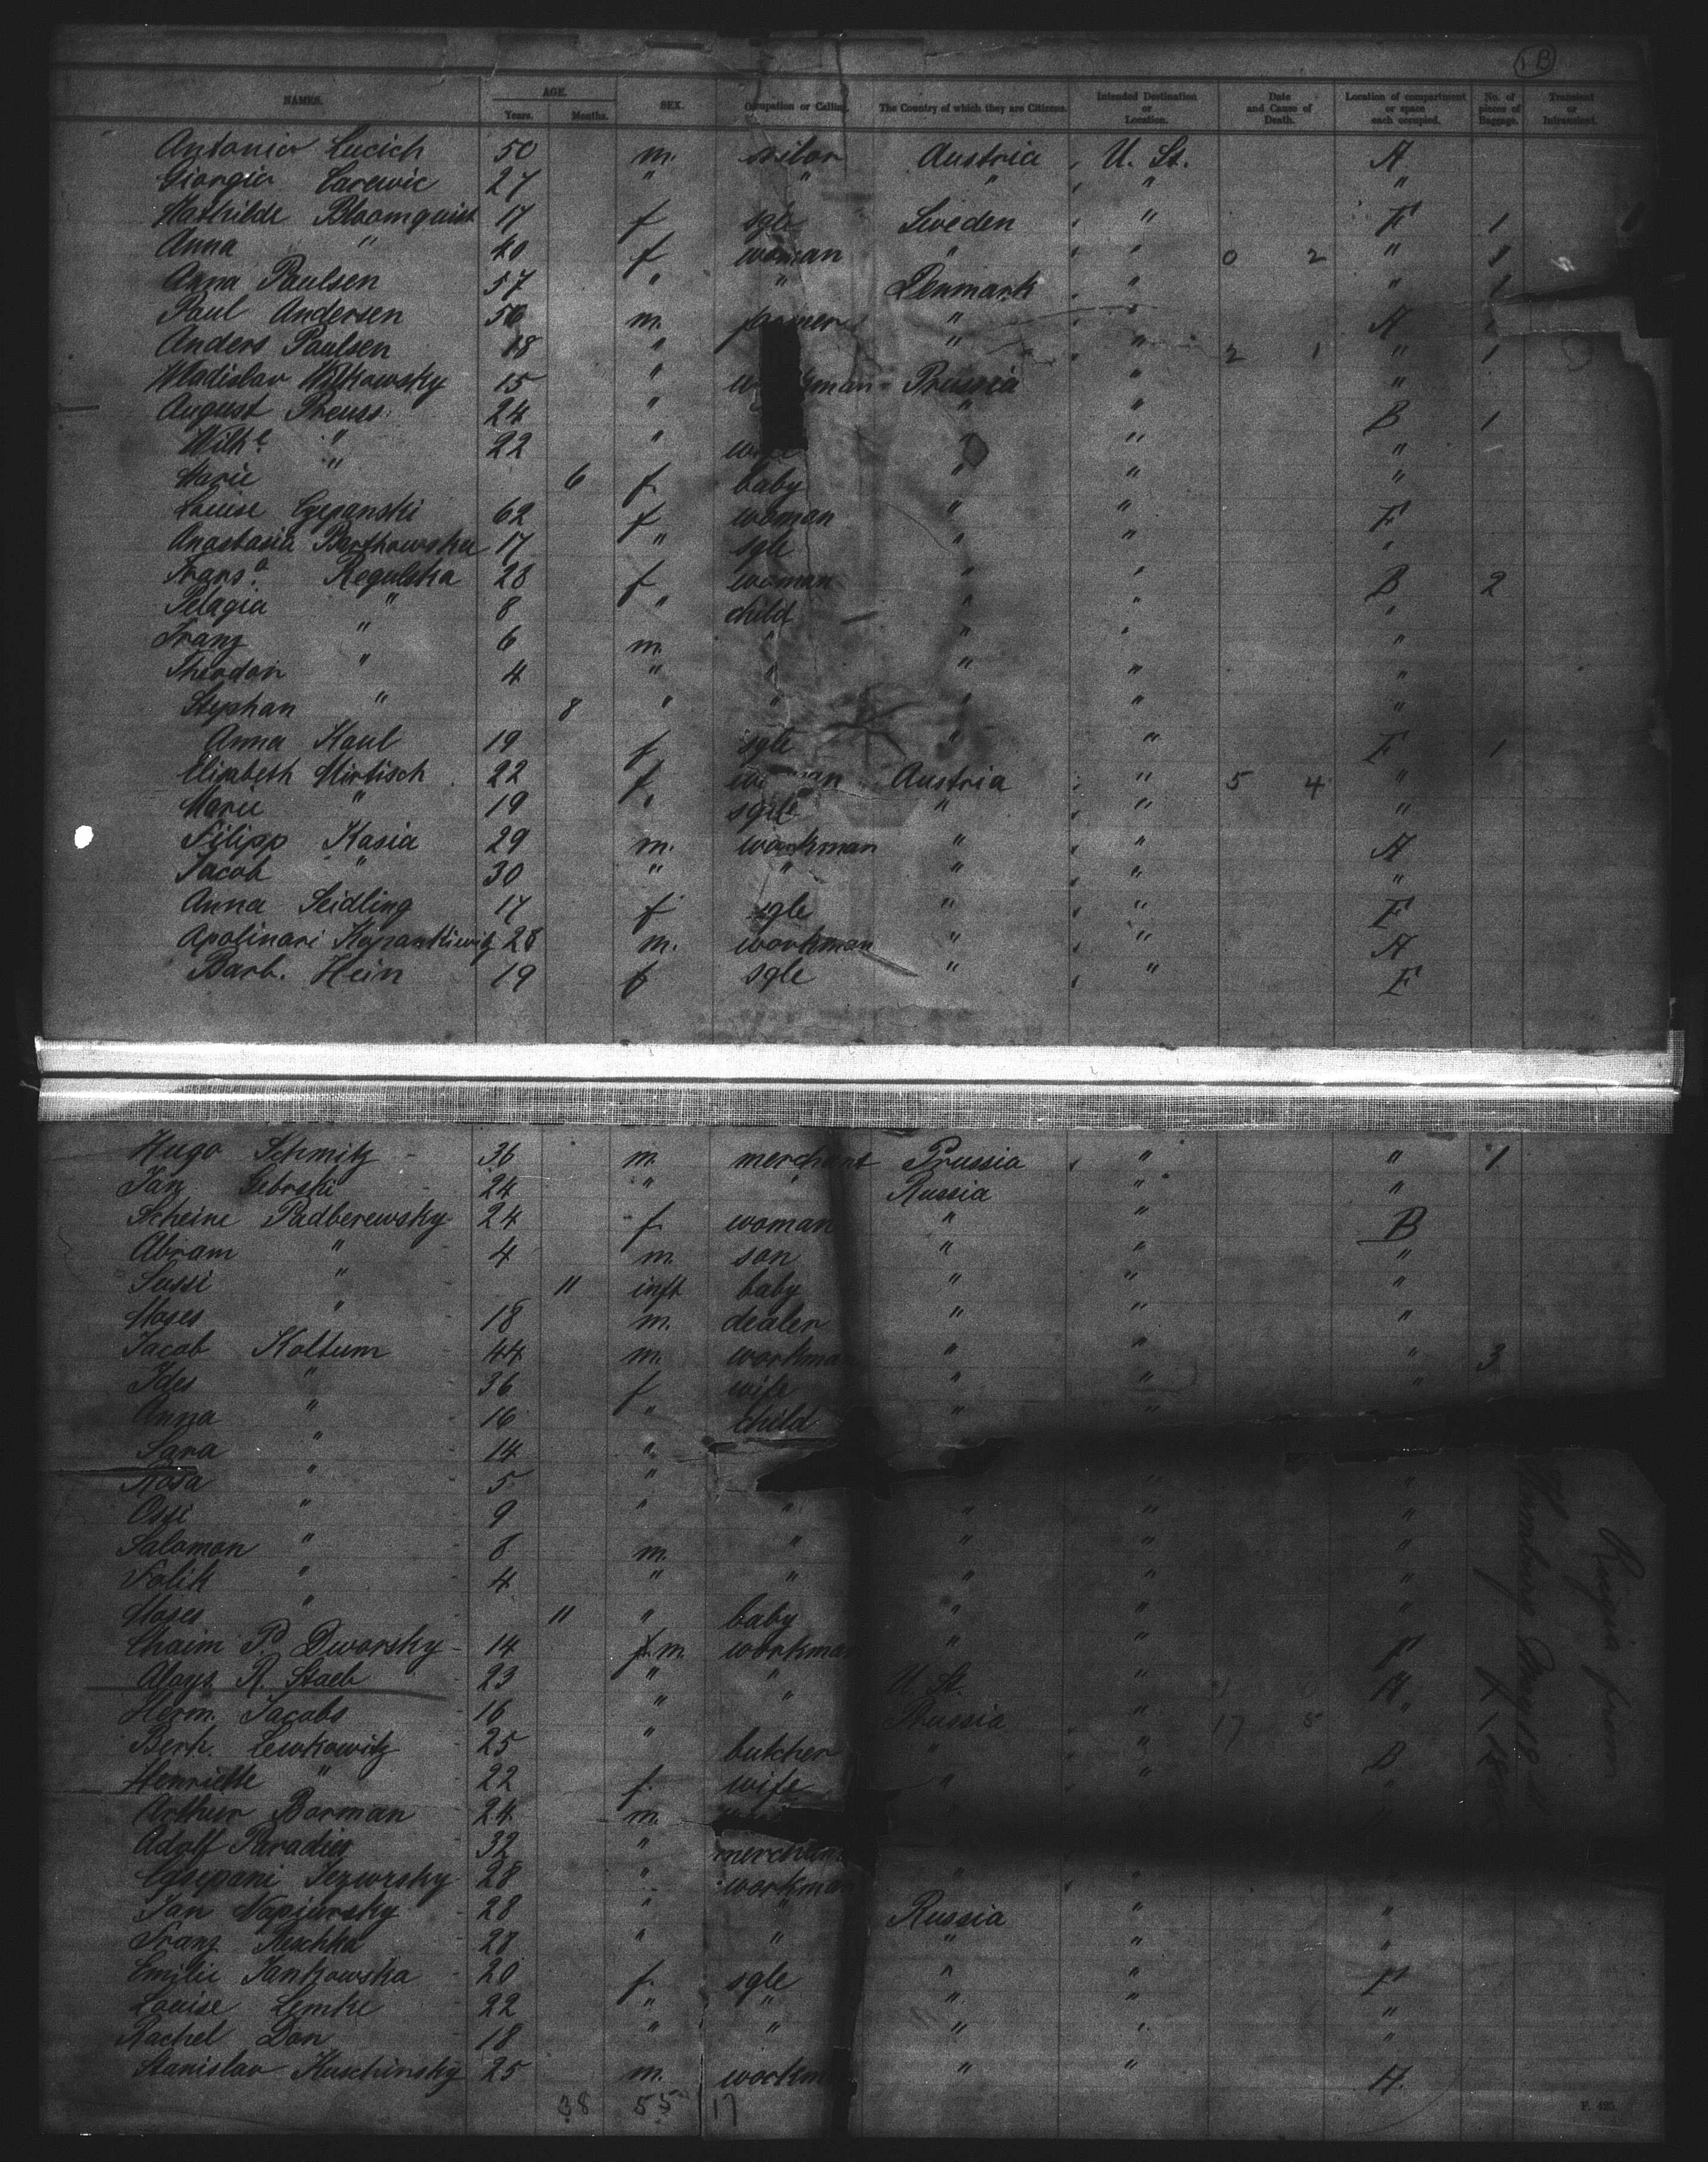 1 B
NAMES. AGE. Years. Months. SEX. Occupation or Calling. The Country of which they are Citizens. Intended Destination or Location. Date and Cause of Death. Location of compartment or space each occupied. No. of pieces of Baggage. Transient or Intransient.
Antonio Lucich 50 m. sailor Austria U. St. A
Giorgio Carewic 27 " " " " "
Mathilde Bloomquist 17 f sgle Sweden " F 1
Anna " 40 f woman " " 0 2 " 1
Anna Paulsen 57 " " Denmark " " 1
Paul Andersen 50 m. farmer " " A 1
Anders Paulsen 18 " " " 2 1 " 1
Wladislav Wilkowsky 15 " workman Prussia " "
August Preuss 24 " " " B 1
Wilhe " 22 " wife " " "
Marie " 6 f. baby " " "
Louise Czepanski 62 f woman " " F
Anastasia Barthowska 17 " sgle " " "
Frans.a Regulska 28 f woman " " B 2
Pelagia " 8 " child " " "
Franz " 6 m. " " " "
Theodor " 4 " " " " "
Stephan " 8 " " " " "
Anna Kaul 19 f sgle " " F 1
Elisabeth Mirtisch 22 f woman Austria " 5 4 "
Marie " 19 " sgle " " "
Filipp Kasia 29 m. workman " " A
Jacob " 30 " " " " "
Anna Seidling 17 f sgle " " F
Apolinari 28 m. workman " " A
Barb. Hein 19 f sgle " " F
Hugo Schmitz 36 m. merchant Prussia " " 1
Jan 24 " " Russia " "
Scheine Padberewsky 24 f. woman " " B
Abram " 4 m. son " " "
Sussi " 11 inft baby " " "
Moses " 18 m. dealer " " "
Jacob Koltum 44 m. workman " " " 3
Ides " 36 f wife " " "
Anna " 16 " child " "
Sara " 14 "
Rosa " 5 " " "
Ossi " 9 " " " " "
Salomon " 8 m. " " " "
Folik " 4 " " " " "
Moses " 11 " baby " " "
Chaim P. Dworsky 14 m. workman " " F
Aloys R. Staeb 23 " " U. St. " A 1
Herm. Jacobs 16 " " Prussia " 17 5 " 1
Berh. Lewkowitz 25 " butcher " " B
Henriette " 22 f. wife " " "
Arthur Borman 24 m.
Adolf Paradies 32 " merchant
28 " workman " "
Jan Napiursky 28 " " Russia " "
Franz 28 " " " " "
Emilie Jankowska 20 f. sgle " " F
Louise Lemke 22 " " " " "
Rachel Don 18 " " " " "
Stanislav Kuschinsky 25 m. workman " " A.
38 55 17
Rugia from
Hamburg
F. 425.